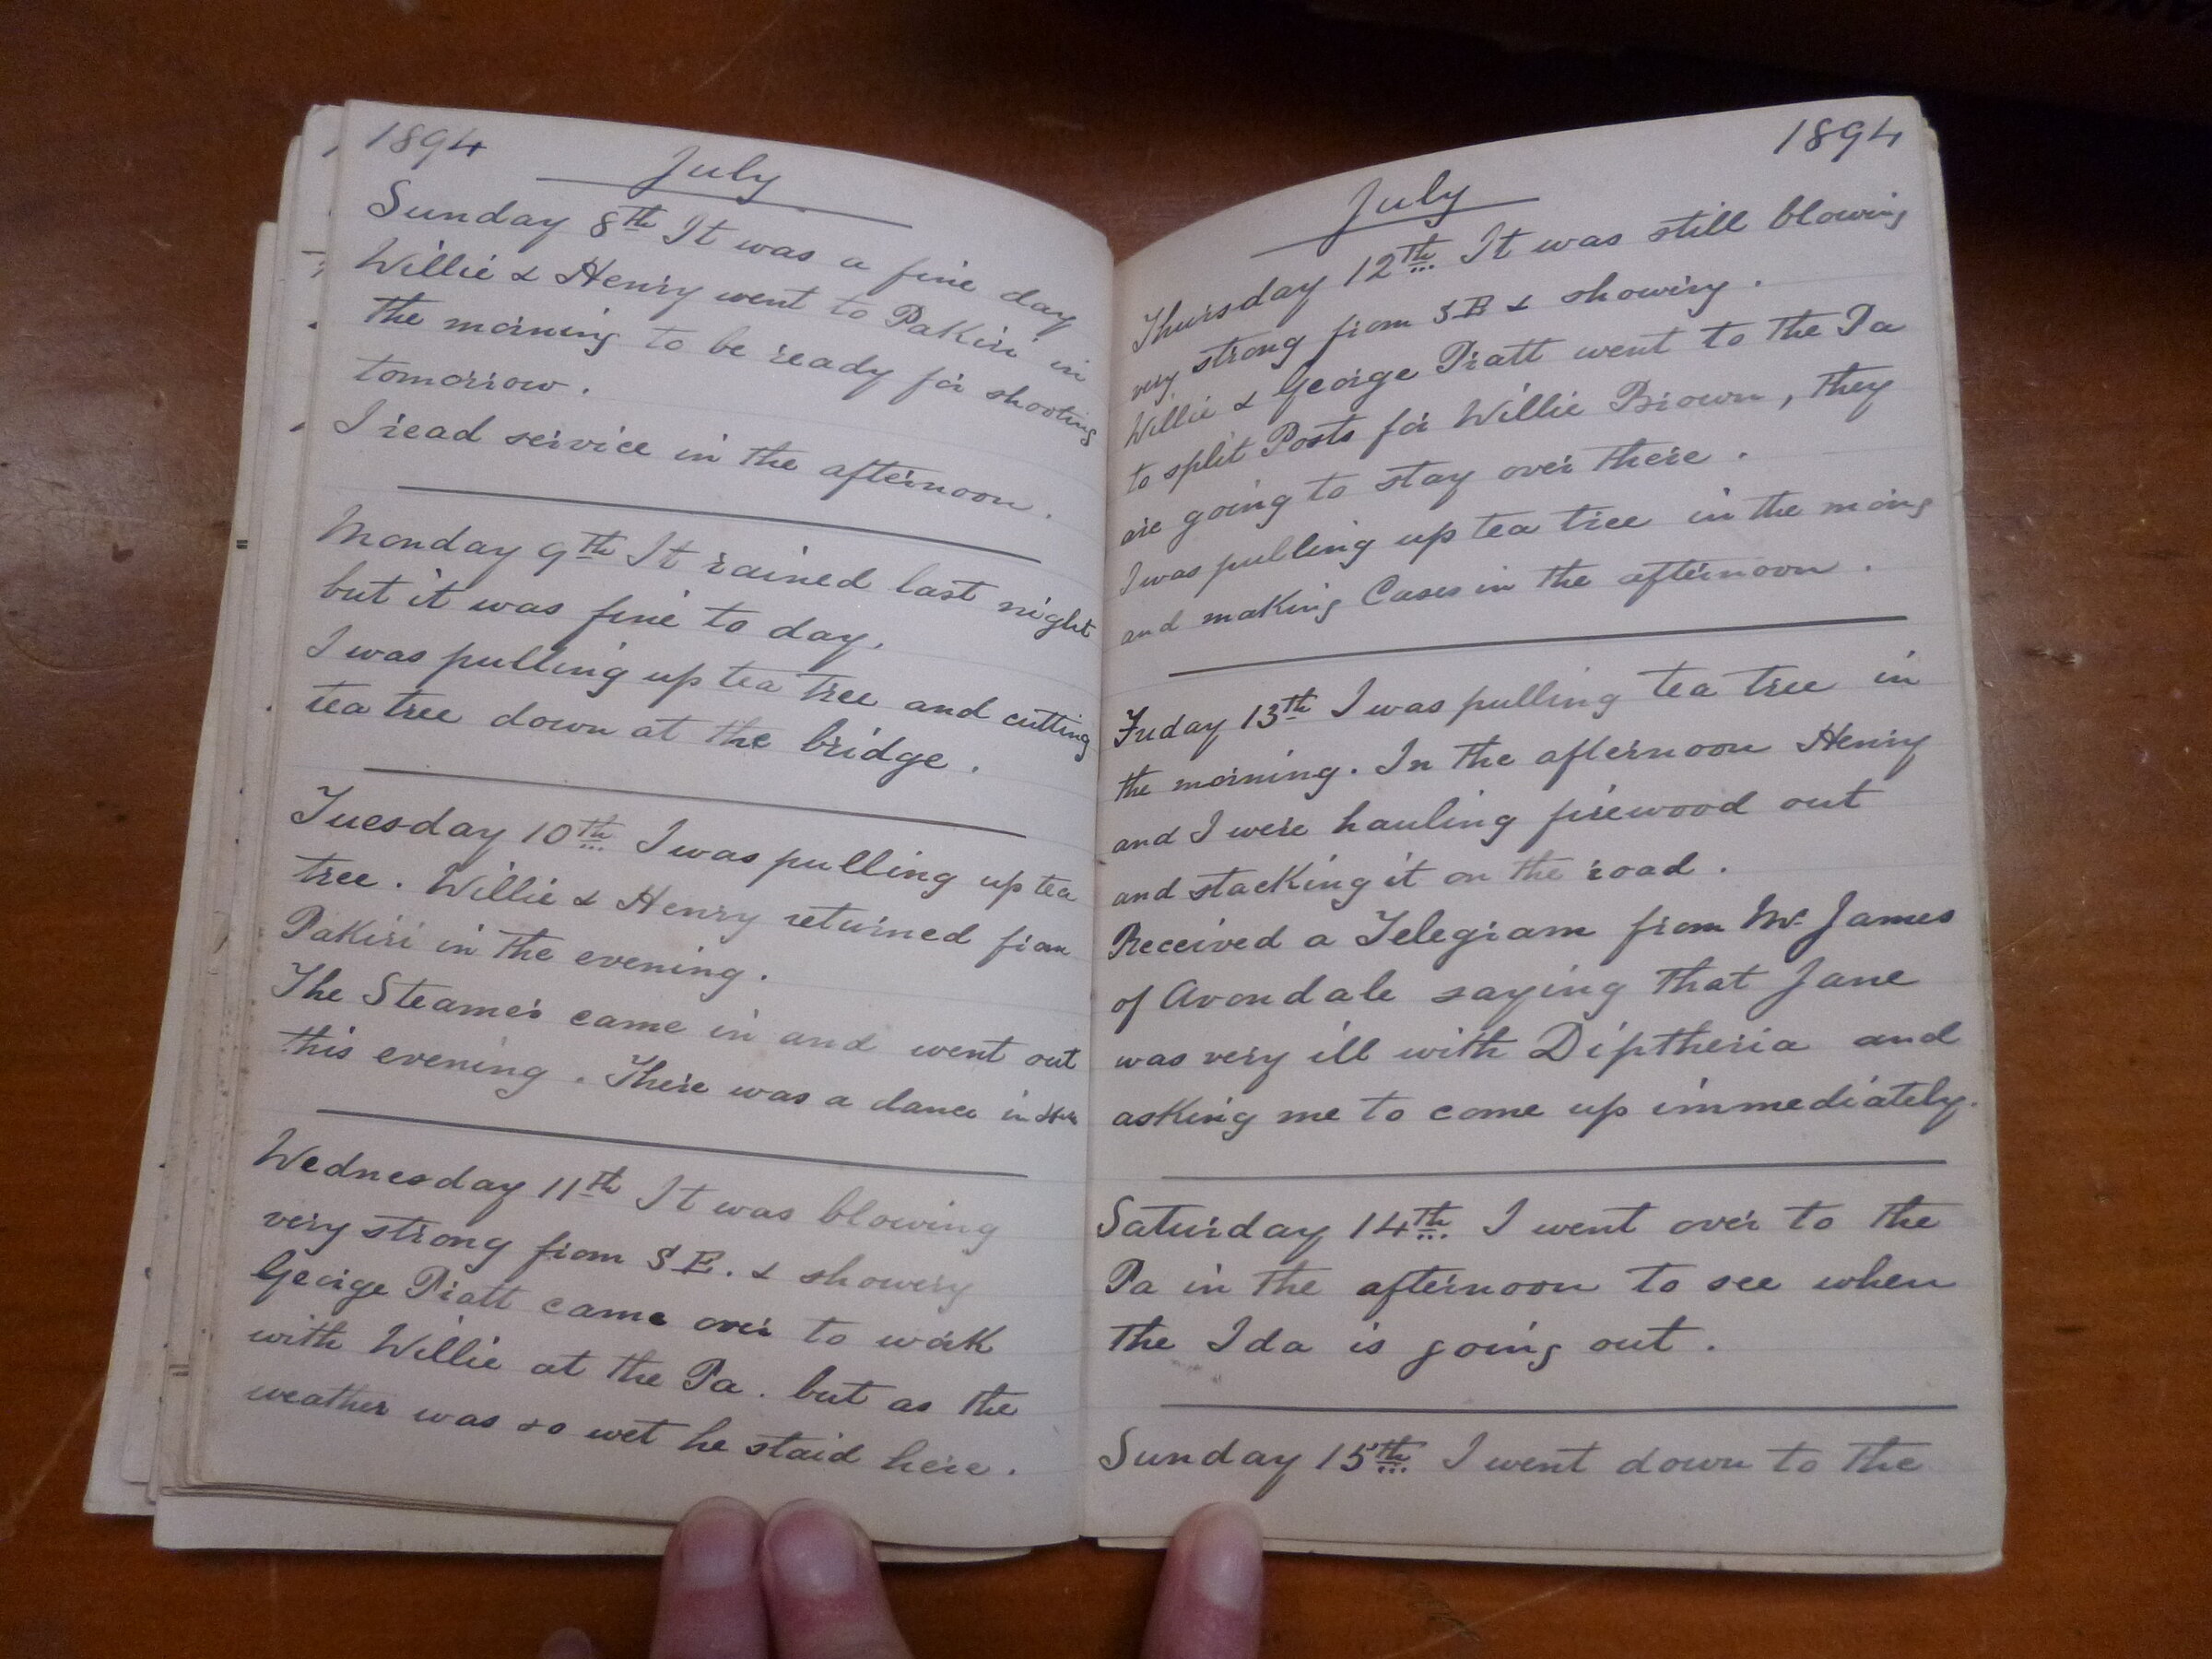 1894
July
Sunday 8th It was a fine day
Willie & Henry went to Pakiri in
the morning to be ready for shooting
tomorrow.
I read service in the afternoon.
Monday 9th It rained last night
but it was fine to day.
I was pulling up tea tree and cutting
tea tree down at the bridge.
Tuesday 10th I was pulling up tea
tree. Willie & Henry returned from
Pakiri in the evening.
The Steamer came in and went out
this evening. There was a dance in
Wednesday 11th It was blowing
very strong from S E. & showery
George Pratt came over to work
with Willie at the Pa. but as the
weather was so wet he staid here.
1894
July
Thursday 12th It was still blowing
very strong from S E & showery.
Willie & George Pratt went to the Pa
to split Posts for Willie Brown, they
are going to stay over there.
I was pulling up tea tree in the morng
and making Cases in the afternoon.
Friday 13th I was pulling tea tree in
the morning. In the afternoon Henry
and I were hauling firewood out
and stacking it on the road.
Received a Telegram from Mr James
of Avondale saying that Jane
was very ill with Diptheria and
asking me to come up immediately.
Saturday 14th I went over to the
Pa in the afternoon to see when
the Ida is going out.
Sunday 15th I went down to the